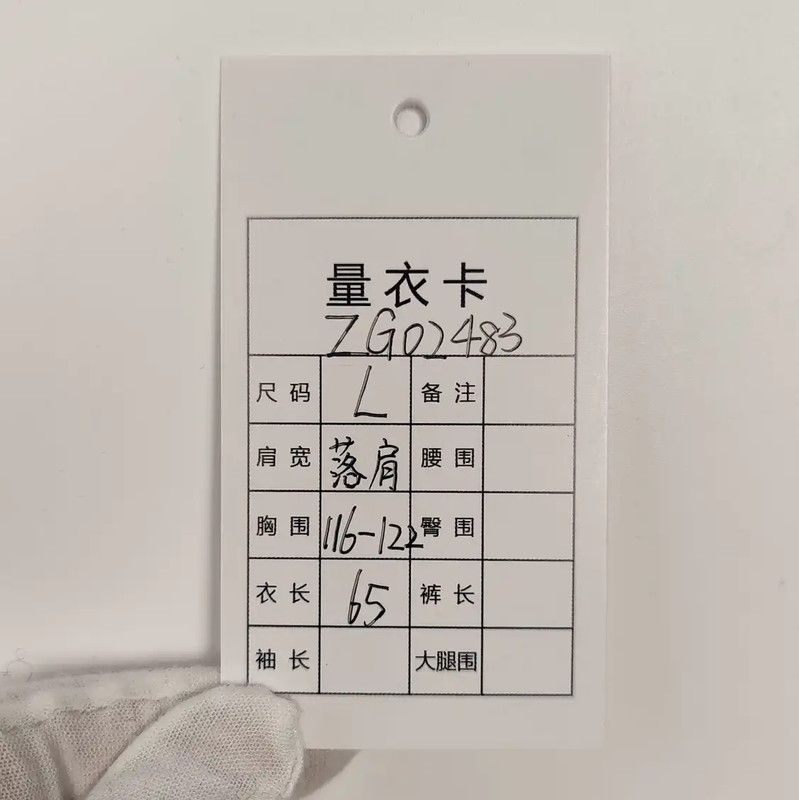 量衣卡
ZG02483
尺码 L 备注
肩宽 落肩 腰围
胸围 116-122 臀围
衣长 65 裤长
袖长 大腿围